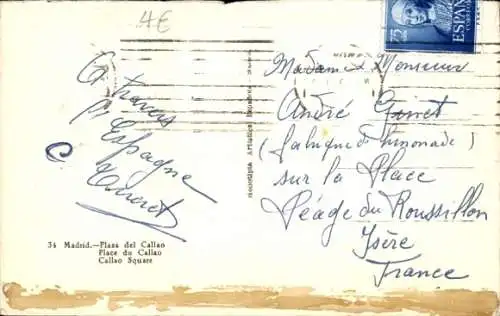 4€
75
CTS
ESPAÑA
CORREOS
A travers
l'Espagne
34 Madrid.—Plaza del Callao
Place du Callao
Callao Square
Heliotipia Artística Española
Madame & Monsieur
André
(fabrique de limonade)
sur la Place
Péage du Roussillon
Isère
France